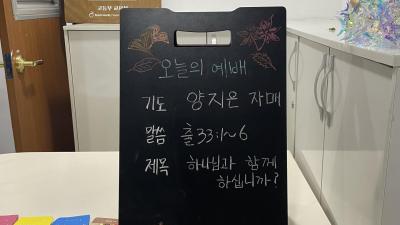 오늘의 예배
기도 양지은 자매
말씀 출33:1~6
제목 하나님과 함께
하십니까?